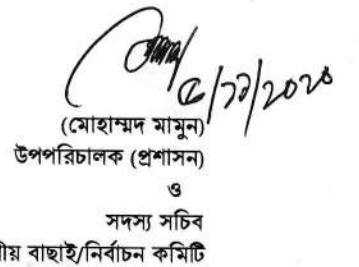 ৫/১১/২০২০
(মোহাম্মদ মামুন)
উপপরিচালক (প্রশাসন)
ও
সদস্য সচিব
বাছাই/নির্বাচন কমিটি